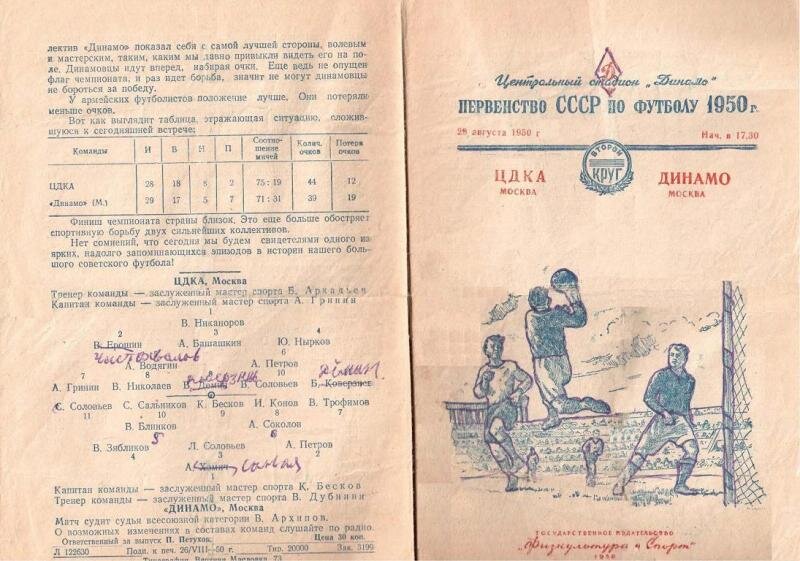 лектив «Динамо» показал себя с самой лучшей стороны, волевым
и мастерским, таким, каким мы давно привыкли видеть его на по-
ле. Динамовцы идут вперед, набирая очки. Еще ведь не опущен
флаг чемпионата, и раз идет борьба, значит не могут динамовцы
не бороться за победу.
У армейских футболистов положение лучше. Они потеряли
меньше очков.
Вот как выглядит таблица, отражающая ситуацию, сложив-
шуюся к сегодняшней встрече:
Команды И В Н П Соотно-шение мячей Колич. очков Потеря очков
ЦДКА 28 18 8 2 75 : 19 44 12
«Динамо» (М.) 29 17 5 7 71 : 31 39 19
Финиш чемпионата страны близок. Это еще больше обостряет
спортивную борьбу двух сильнейших коллективов.
Нет сомнений, что сегодня мы будем свидетелями одного из
ярких, надолго запоминающихся эпизодов в истории нашего боль-
шого советского футбола!
ЦДКА, Москва
Тренер команды — заслуженный мастер спорта Б. Аркадьев
Капитан команды — заслуженный мастер спорта А. Гринин
1
В. Никаноров
2 3 4
В. Ерошин А. Башашкин Ю. Нырков
Чистохвалов
5 6
А. Водягин А. Петров
7 8 9 10 11
А. Гринин В. Николаев В. Демин В. Соловьев Б. Коверзнев
Коверзнев Дёмин
С. Соловьев С. Сальников К. Бесков И. Конов В. Трофимов
11 10 9 8 7
В. Блинков А. Соколов
5 6
В. Зябликов Л. Соловьев А. Петров
4 3 2
А. Хомич Саная
1
Капитан команды — заслуженный мастер спорта К. Бесков
Тренер команды — заслуженный мастер спорта В. Дубинин
«ДИНАМО», Москва
Матч судит судья всесоюзной категории В. Архипов.
О возможных изменениях в составах команд слушайте по радио.
Ответственный за выпуск П. Петухов. Цена 30 коп.
Л 122630 Подп. к печ. 26/VIII-50 г. Тир. 20000 Зак. 3199
Типография, Верхняя Масловка, 73
Д
Центральный стадион „Динамо“
ПЕРВЕНСТВО СССР ПО ФУТБОЛУ 1950 г.
28 августа 1950 г Нач. в 17.30
ВТОРОЙ
КРУГ
ЦДКА
МОСКВА
ДИНАМО
МОСКВА
ГОСУДАРСТВЕННОЕ ИЗДАТЕЛЬСТВО
„Физкультура и Спорт“
1950